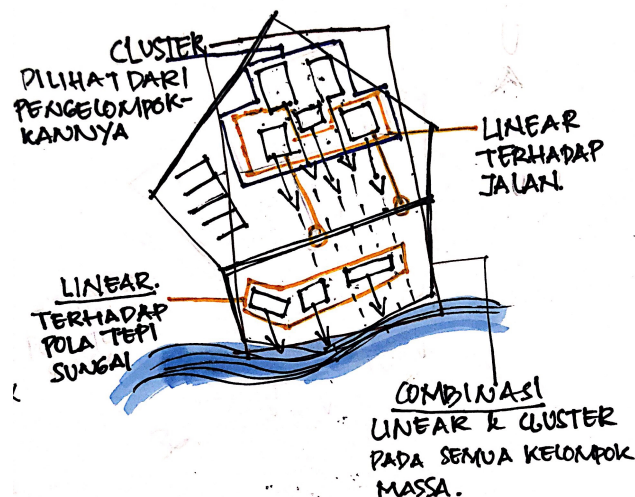 CLUSTER
DILIHAT DARI
PENGELOMPOK-
KANNYA
LINEAR
TERHADAP
JALAN.
LINEAR.
TERHADAP
POLA TEPI
SUNGAI
COMBINASI
LINEAR & CLUSTER
PADA SEMUA KELOMPOK
MASSA.